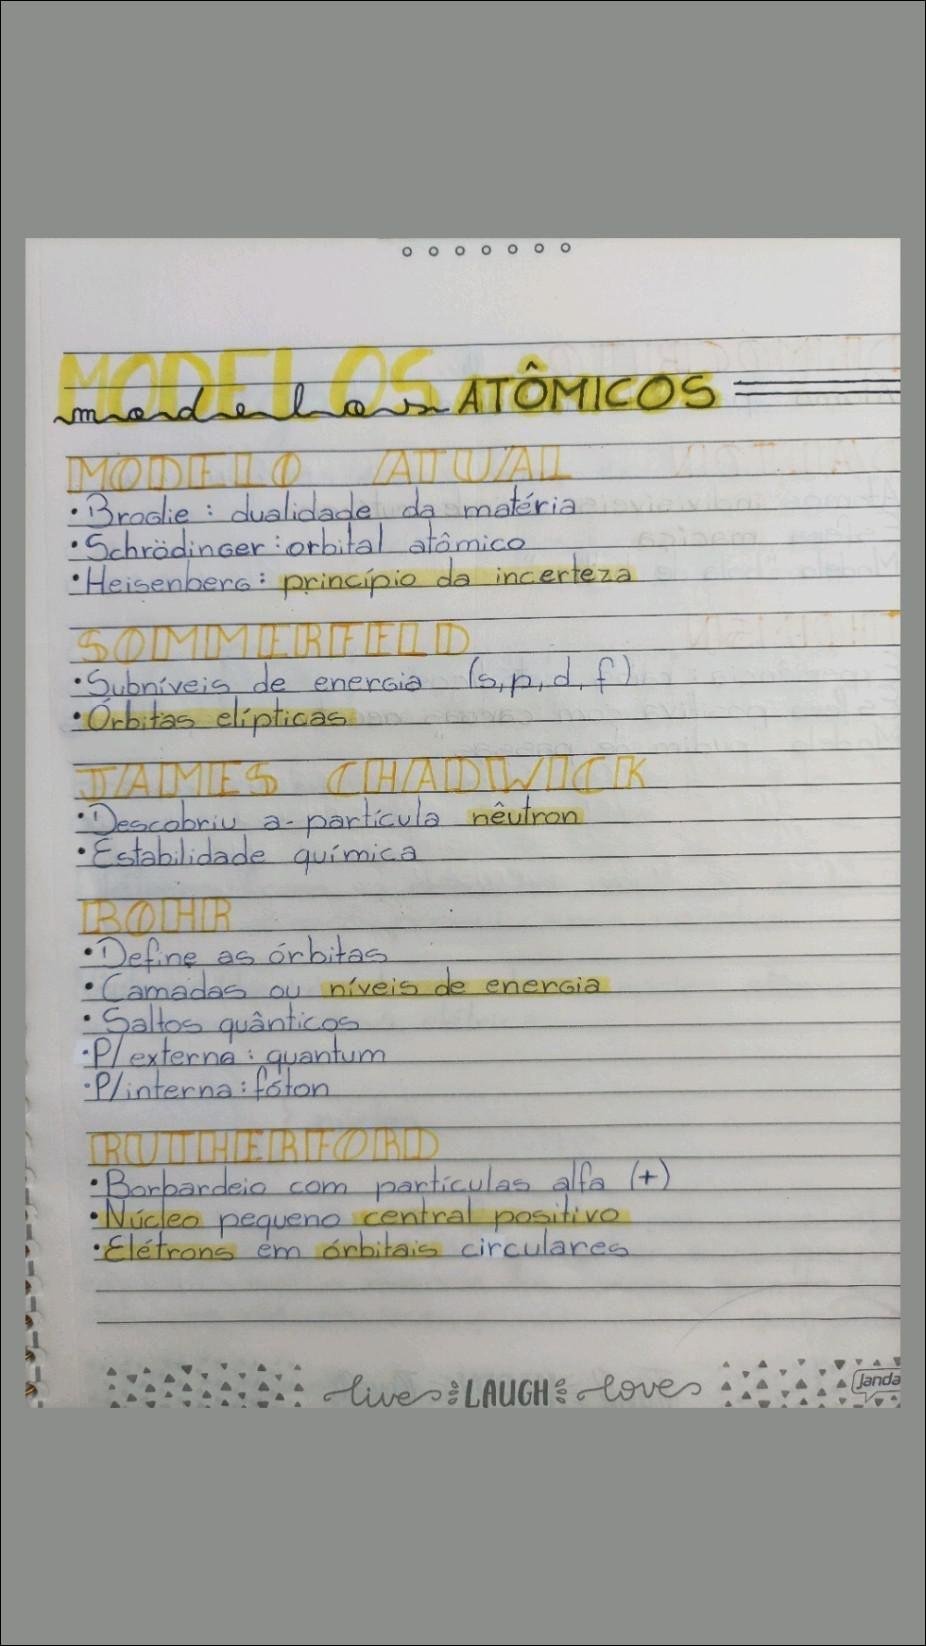 MODELOS
modelos ATÔMICOS
MODELO ATUAL
• Broglie: dualidade da matéria
• Schrödinger: orbital atômico
• Heisenberg: princípio da incerteza
SOMMERFELD
• Subníveis de energia (s, p, d, f)
• Órbitas elípticas
JAMES CHADWICK
• Descobriu a partícula nêutron
• Estabilidade química
BOHR
• Define as órbitas
• Camadas ou níveis de energia
• Saltos quânticos
• P/ externa: quantum
• P/ interna: fóton
RUTHERFORD
• Borbardeio com partículas alfa (+)
• Núcleo pequeno central positivo
• Elétrons em órbitais circulares
live LAUGH love
Janda